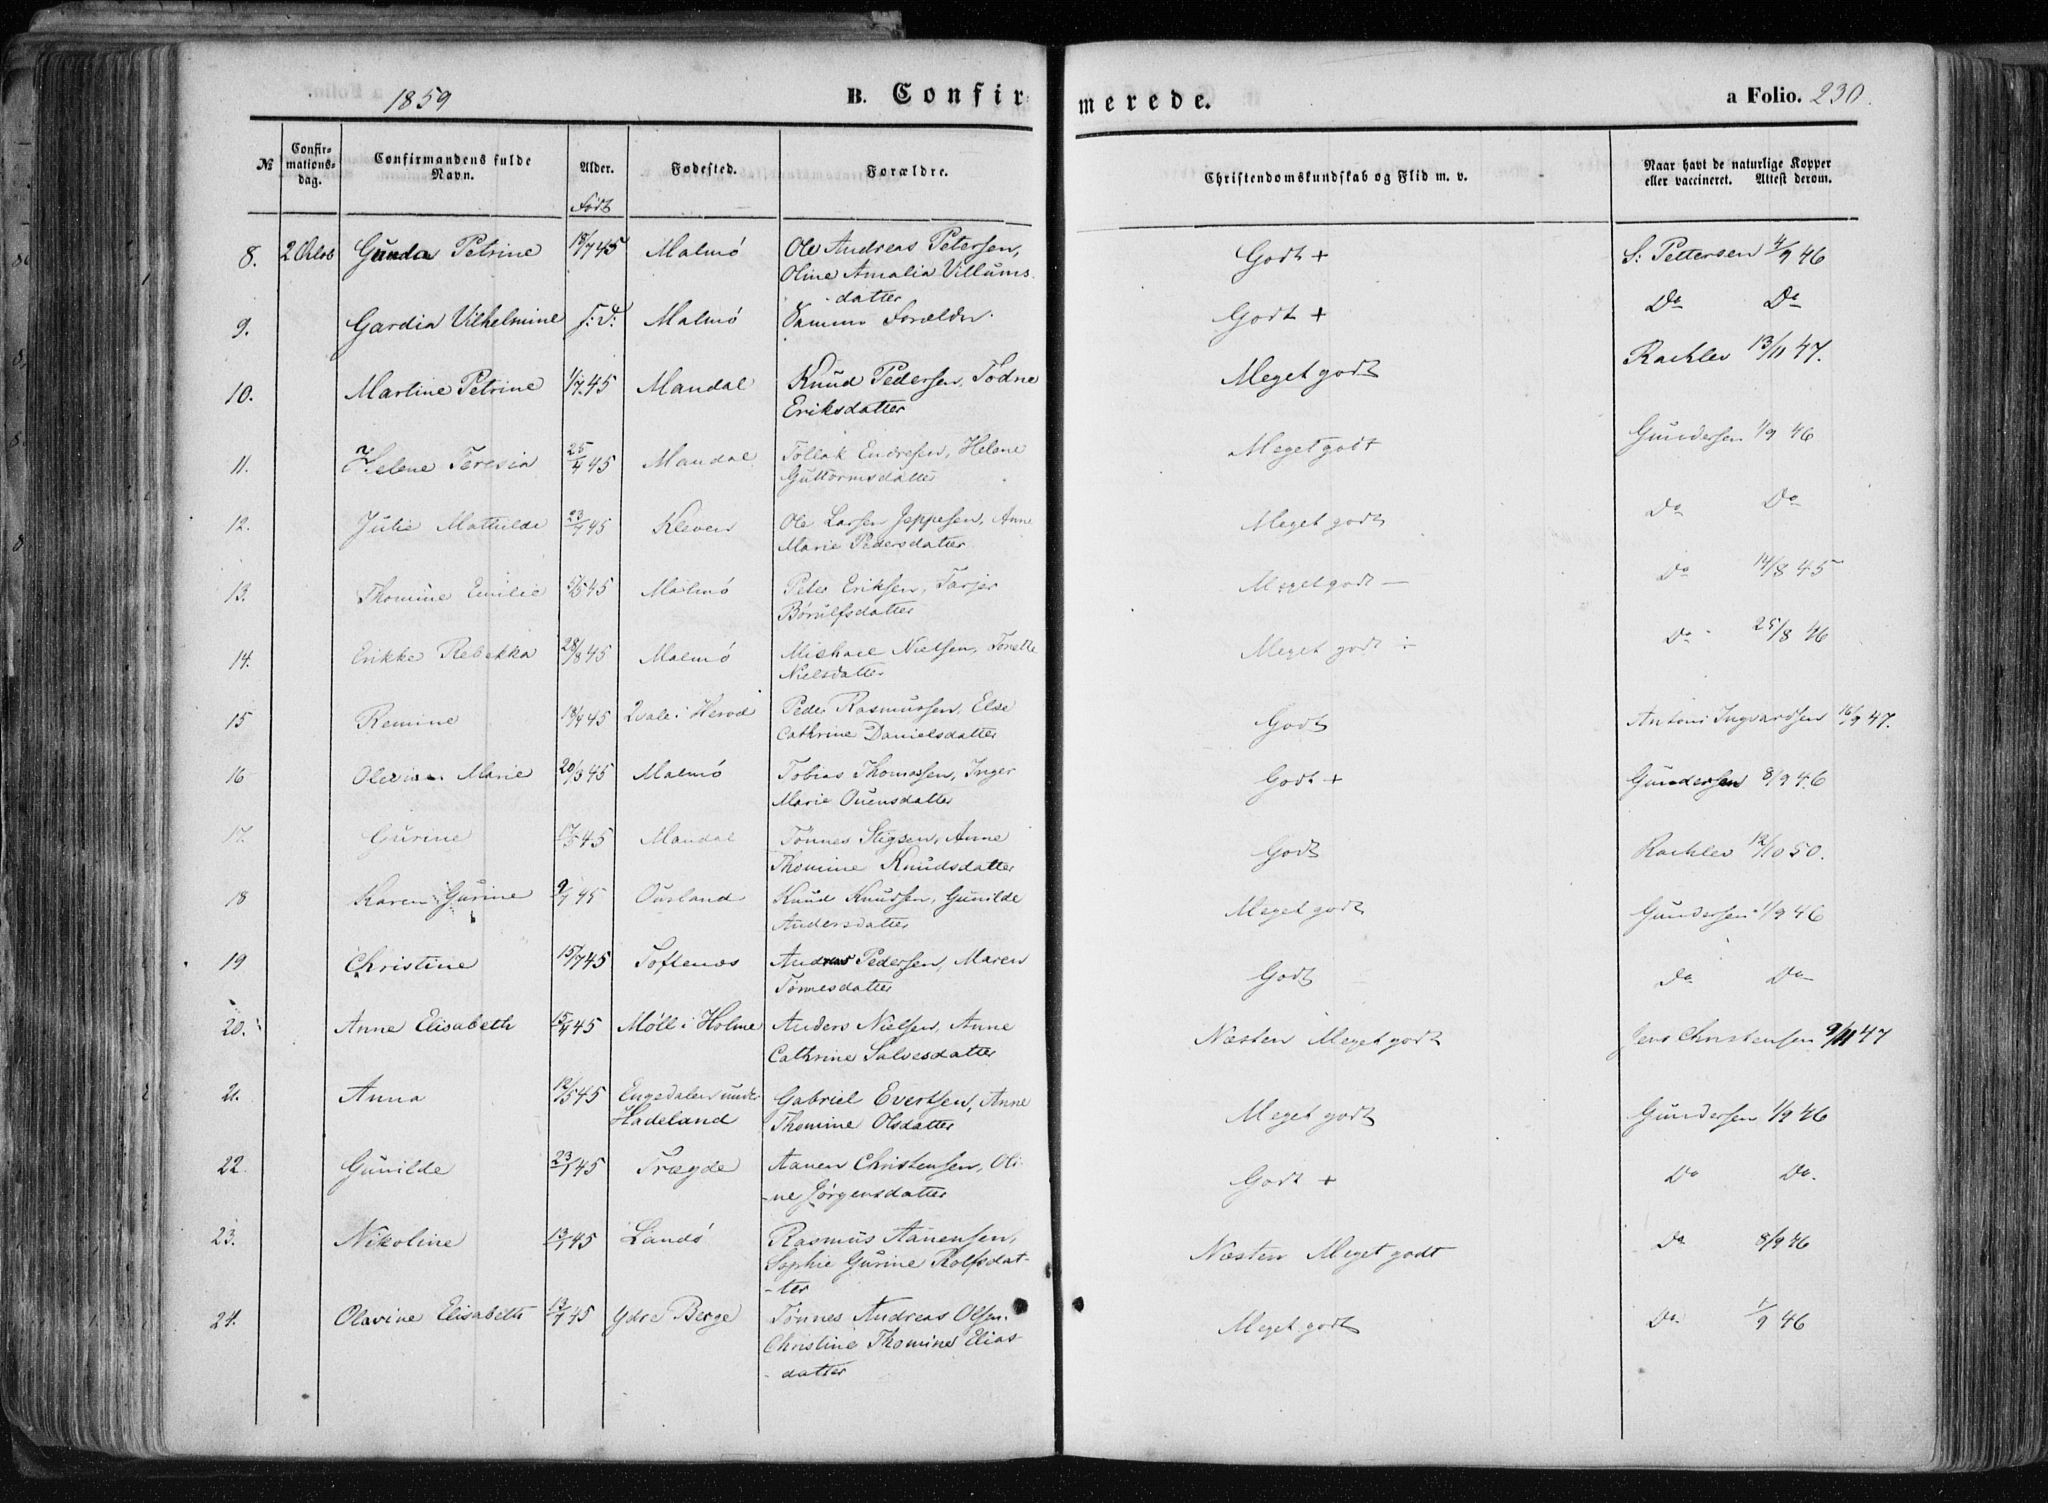 1859 B. Confirmerede. a Folio. 230.
№ Confirmationsdag. Confirmandens fulde Navn. Alder. Født Fødested. Forældre. Christendomskundskab og Flid m. v. Naar havt de naturlige Kopper eller vaccineret. Attest derom.
8. 2 Gunda Petrine 18/7 45 Malmø Ole Andreas Petersen, Godt + S: Pettersen 4/9 46
Oline Amalia Villums-
datter
9. Gardia Vilhelmine s: d: Malmø Samme Forældre. Godt + Do Do
10. Martine Petrine 1/7 45 Mandal Knud Pedersen, Todne Meget godt 13/11 47.
Eriksdatter
11. Helene Teresia 25/4 45 Mandal Tollak Endresen, Helene Meget godt Gundersen 1/9 46
Guttormsdatter
12. Julie Mathilde 23/4 45 Kleven Ole Larsen Jeppesen, Anne Meget godt Do Do
Marie Pedersdatter
13. Thomine Emilie 5/5 45 Malmø Peter Eriksen, Tarjer Meget godt — Do 14/8 45
Børulfsdatter
14. Erikke Rebekka 28/8 45 Malmø Michael Nielsen, Tonette Meget godt ÷ Do 25/8 46
Nielsdatter
15 Remine 13/4 45 Qvale i Herød Peder Rasmussen, Else Godt Antoni Ingvardsen 16/9 47.
Cathrine Danielsdatter
16 Marie 20/3 45 Malmø Tobias Thomassen, Inger Godt + Gundersen 8/9 46
Marie Ouensdatter
17. Gurine 17/5 45 Mandal Tønnes Stigsen, Anne Godt 12/10 50.
Thomine Knudsdatter
18 Karen Gurine 9/4 45 Ousland Knud Knudsen, Gunilde Meget godt Gundersen 1/9 46
Andersdatter
19 Christine 15/7 45 Toftenes Andreas Pedersen, Maren Godt Do Do
Tønnesdatter
20. Anne Elisabeth 15/4 45 Møll i Holme Anders Nielsen, Anne Næsten Meget godt Jens Christensen 9/11 47
Cathrine Salvesdatter
21. Anna 12/5 45 Engedalen under Gabriel Evertsen, Anne Meget godt Gundersen 1/9 46
Hadeland Thomine Olsdatter
22. Gunilde 23/1 45 Trægde Aanen Christensen, Oli- Godt + Do Do.
-ne Jørgensdatter
23. Nikoline 13/1 45 Landø Rasmus Aanensen, Næsten Meget godt Do 8/9 46
Sophie Gurine Rolfsdat-
-ter
24. Olavine Elisabeth 13/4 45 Ydre Berge Tønnes Andreas Olsen, Meget godt Do. 1/9 46
Christine Thomine Elias-
datter